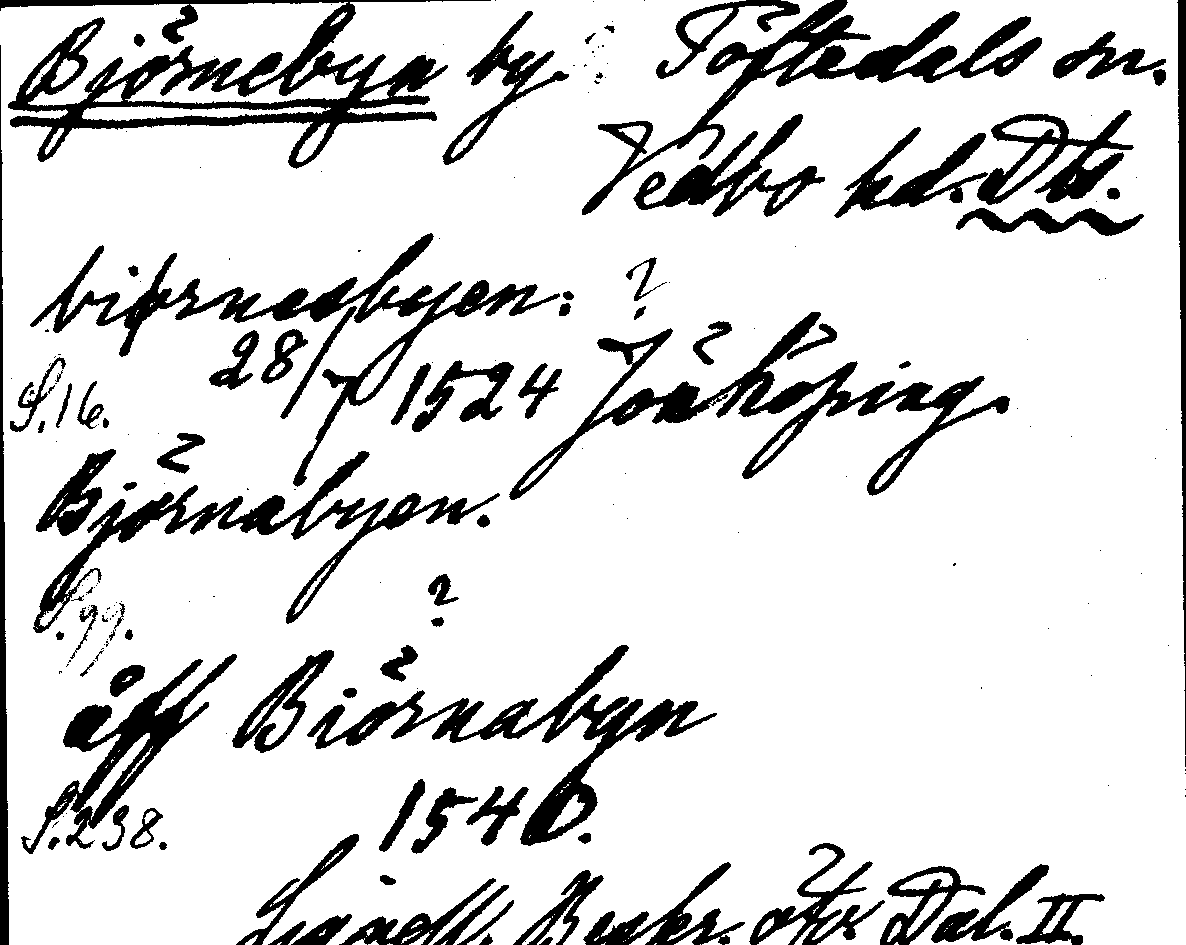 Björnebyn by. Töftedals sn.
Vedbo hd. Dls.
biørnesbyen: ?
S.16. 28/7 1524 Jönköping.
Björnabyen.
S.99. ?
åff Biörnabyn
S.238. 1540.
Lignell. Beskr. öfv. Dal. II.